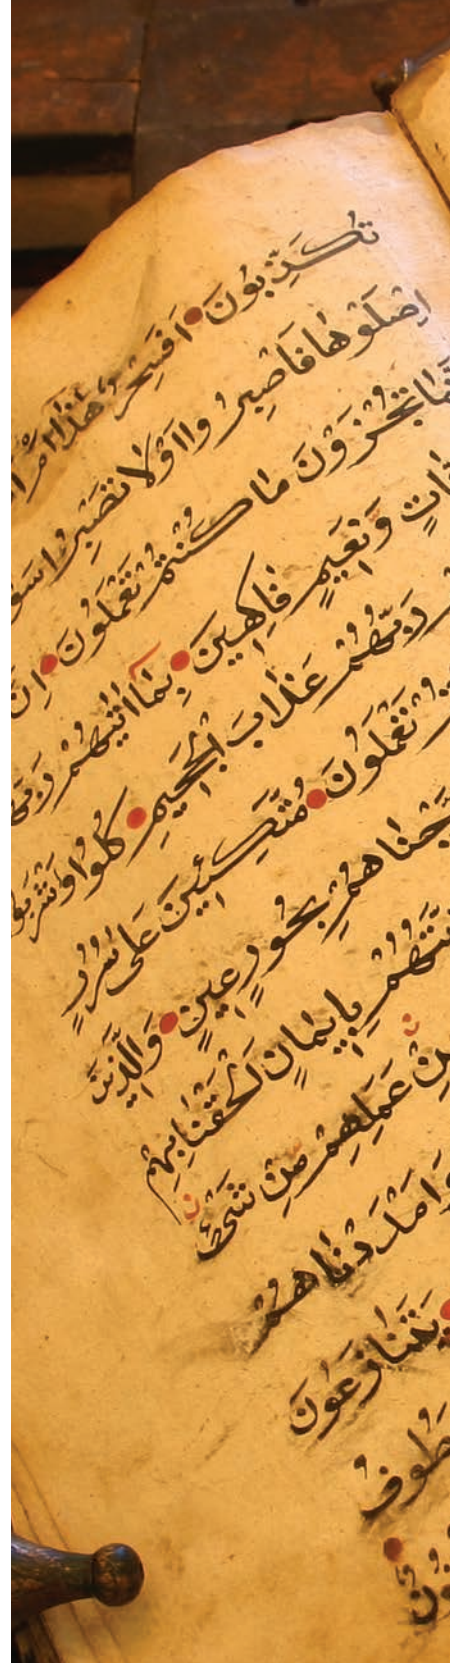 تُكَذِّبُونَ اَفَسِحْرٌ هٰذَا اَمْ
اِصْلَوْهَا فَاصْبِرُوا اَوْلَا تَصْبِرُوا سَو
مَا تُجْزَوْنَ مَا كُنْتُمْ تَعْمَلُونَ اِنَّ
اتٍ وَنَعِيمٍ فَاكِهِينَ بِمَا اٰتٰيهُمْ رَبُّه
رَبُّهُمْ عَذَابَ الْجَحِيمِ كُلُوا وَاشْرَبُو
تَعْمَلُونَ مُتَّكِئِينَ عَلٰى سُرُرٍ
جْنَاهُمْ بِحُورٍ عِينٍ وَالَّذِينَ
يَّتُهُمْ بِاِيمَانٍ لْحَقْنَا بِهِمْ
مِنْ عَمَلِهِمْ مِنْ شَىْءٍ
وَاَمْدَدْنَاهُمْ
يَتَنَازَعُونَ
طُوفُ